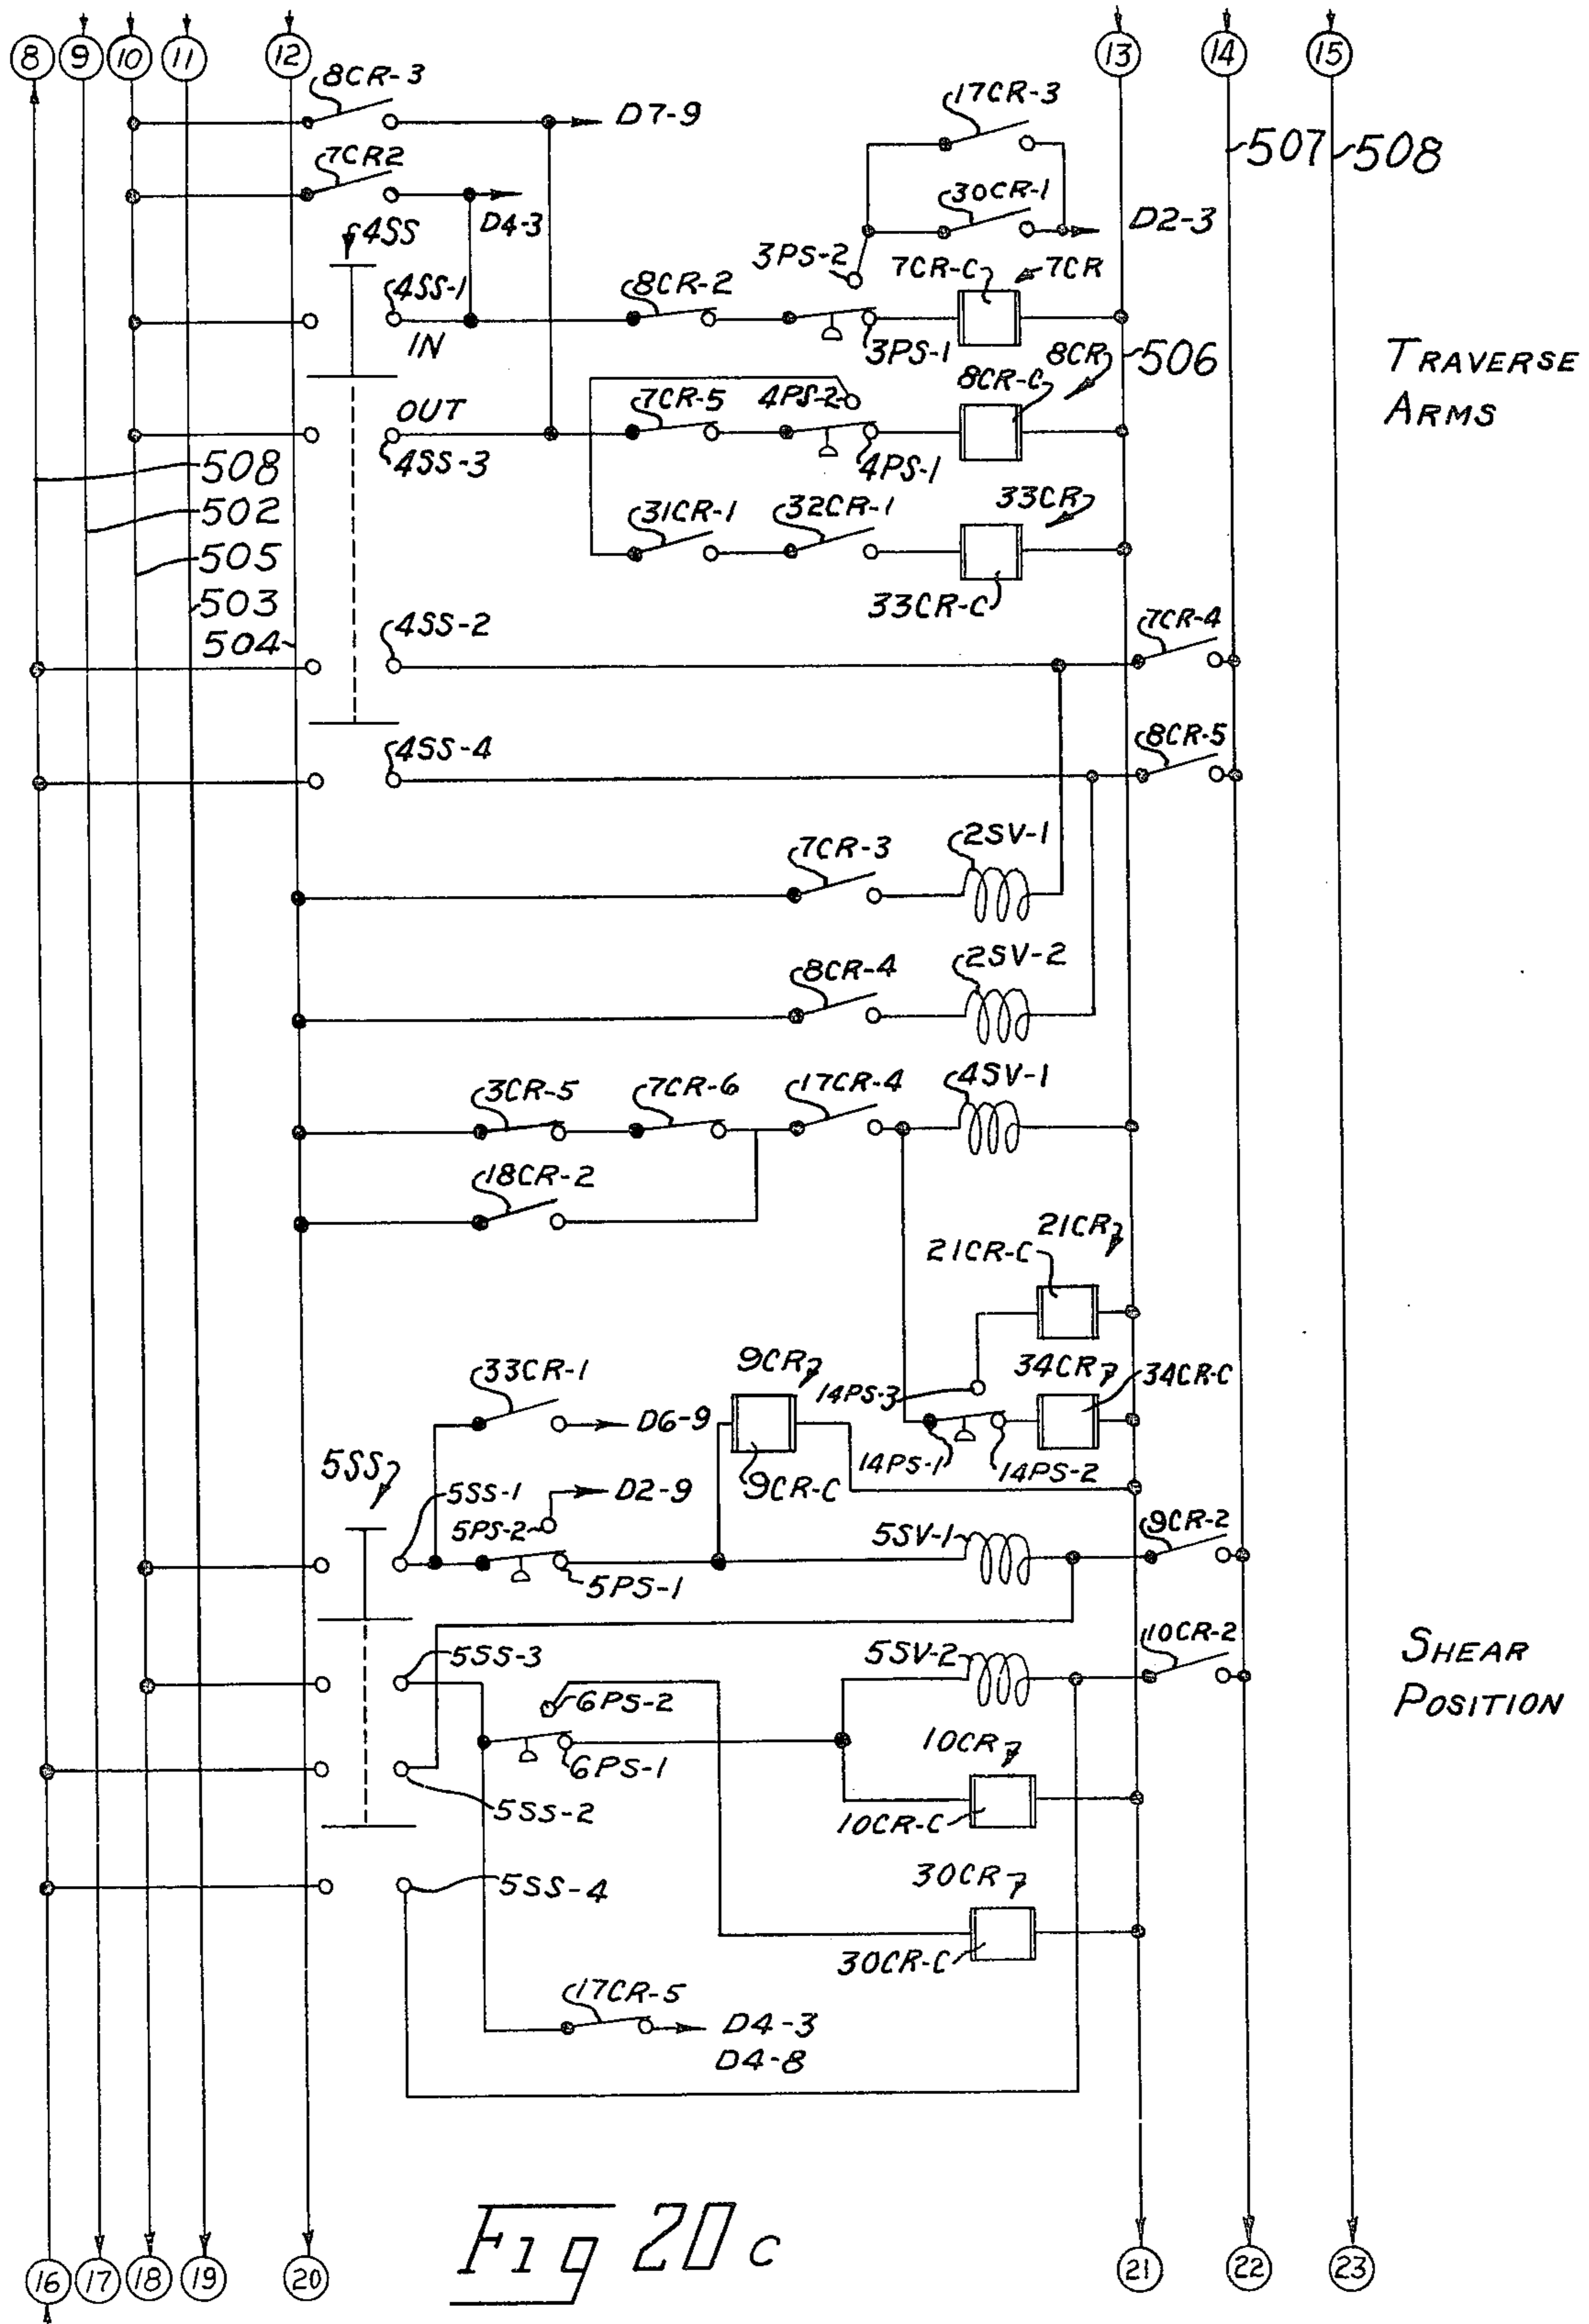 8 9 10 11 12 13 14 15
8CR-3
D7-9
17CR-3
507 508
7CR2
D4-3
30CR-1
D2-3
4SS
3PS-2
7CR-C 7CR
4SS-1
8CR-2
IN
3PS-1
506
TRAVERSE
ARMS
8CR-C 8CR
OUT
7CR-5 4PS-2
4SS-3
4PS-1
508
502
31CR-1 32CR-1 33CR
505
503
33CR-C
504
4SS-2
7CR-4
4SS-4
8CR-5
7CR-3 2SV-1
8CR-4 2SV-2
3CR-5 7CR-6 17CR-4 4SV-1
18CR-2
21CR
21CR-C
33CR-1
9CR
14PS-3
34CR 34CR-C
D6-9
5SS
9CR-C
14PS-1 14PS-2
5SS-1
D2-9
5PS-2
5SV-1
9CR-2
5PS-1
5SS-3
5SV-2
10CR-2
SHEAR
POSITION
6PS-2
6PS-1
10CR
5SS-2
10CR-C
5SS-4
30CR
30CR-C
17CR-5
D4-3
D4-8
Fig 20c
16 17 18 19 20 21 22 23